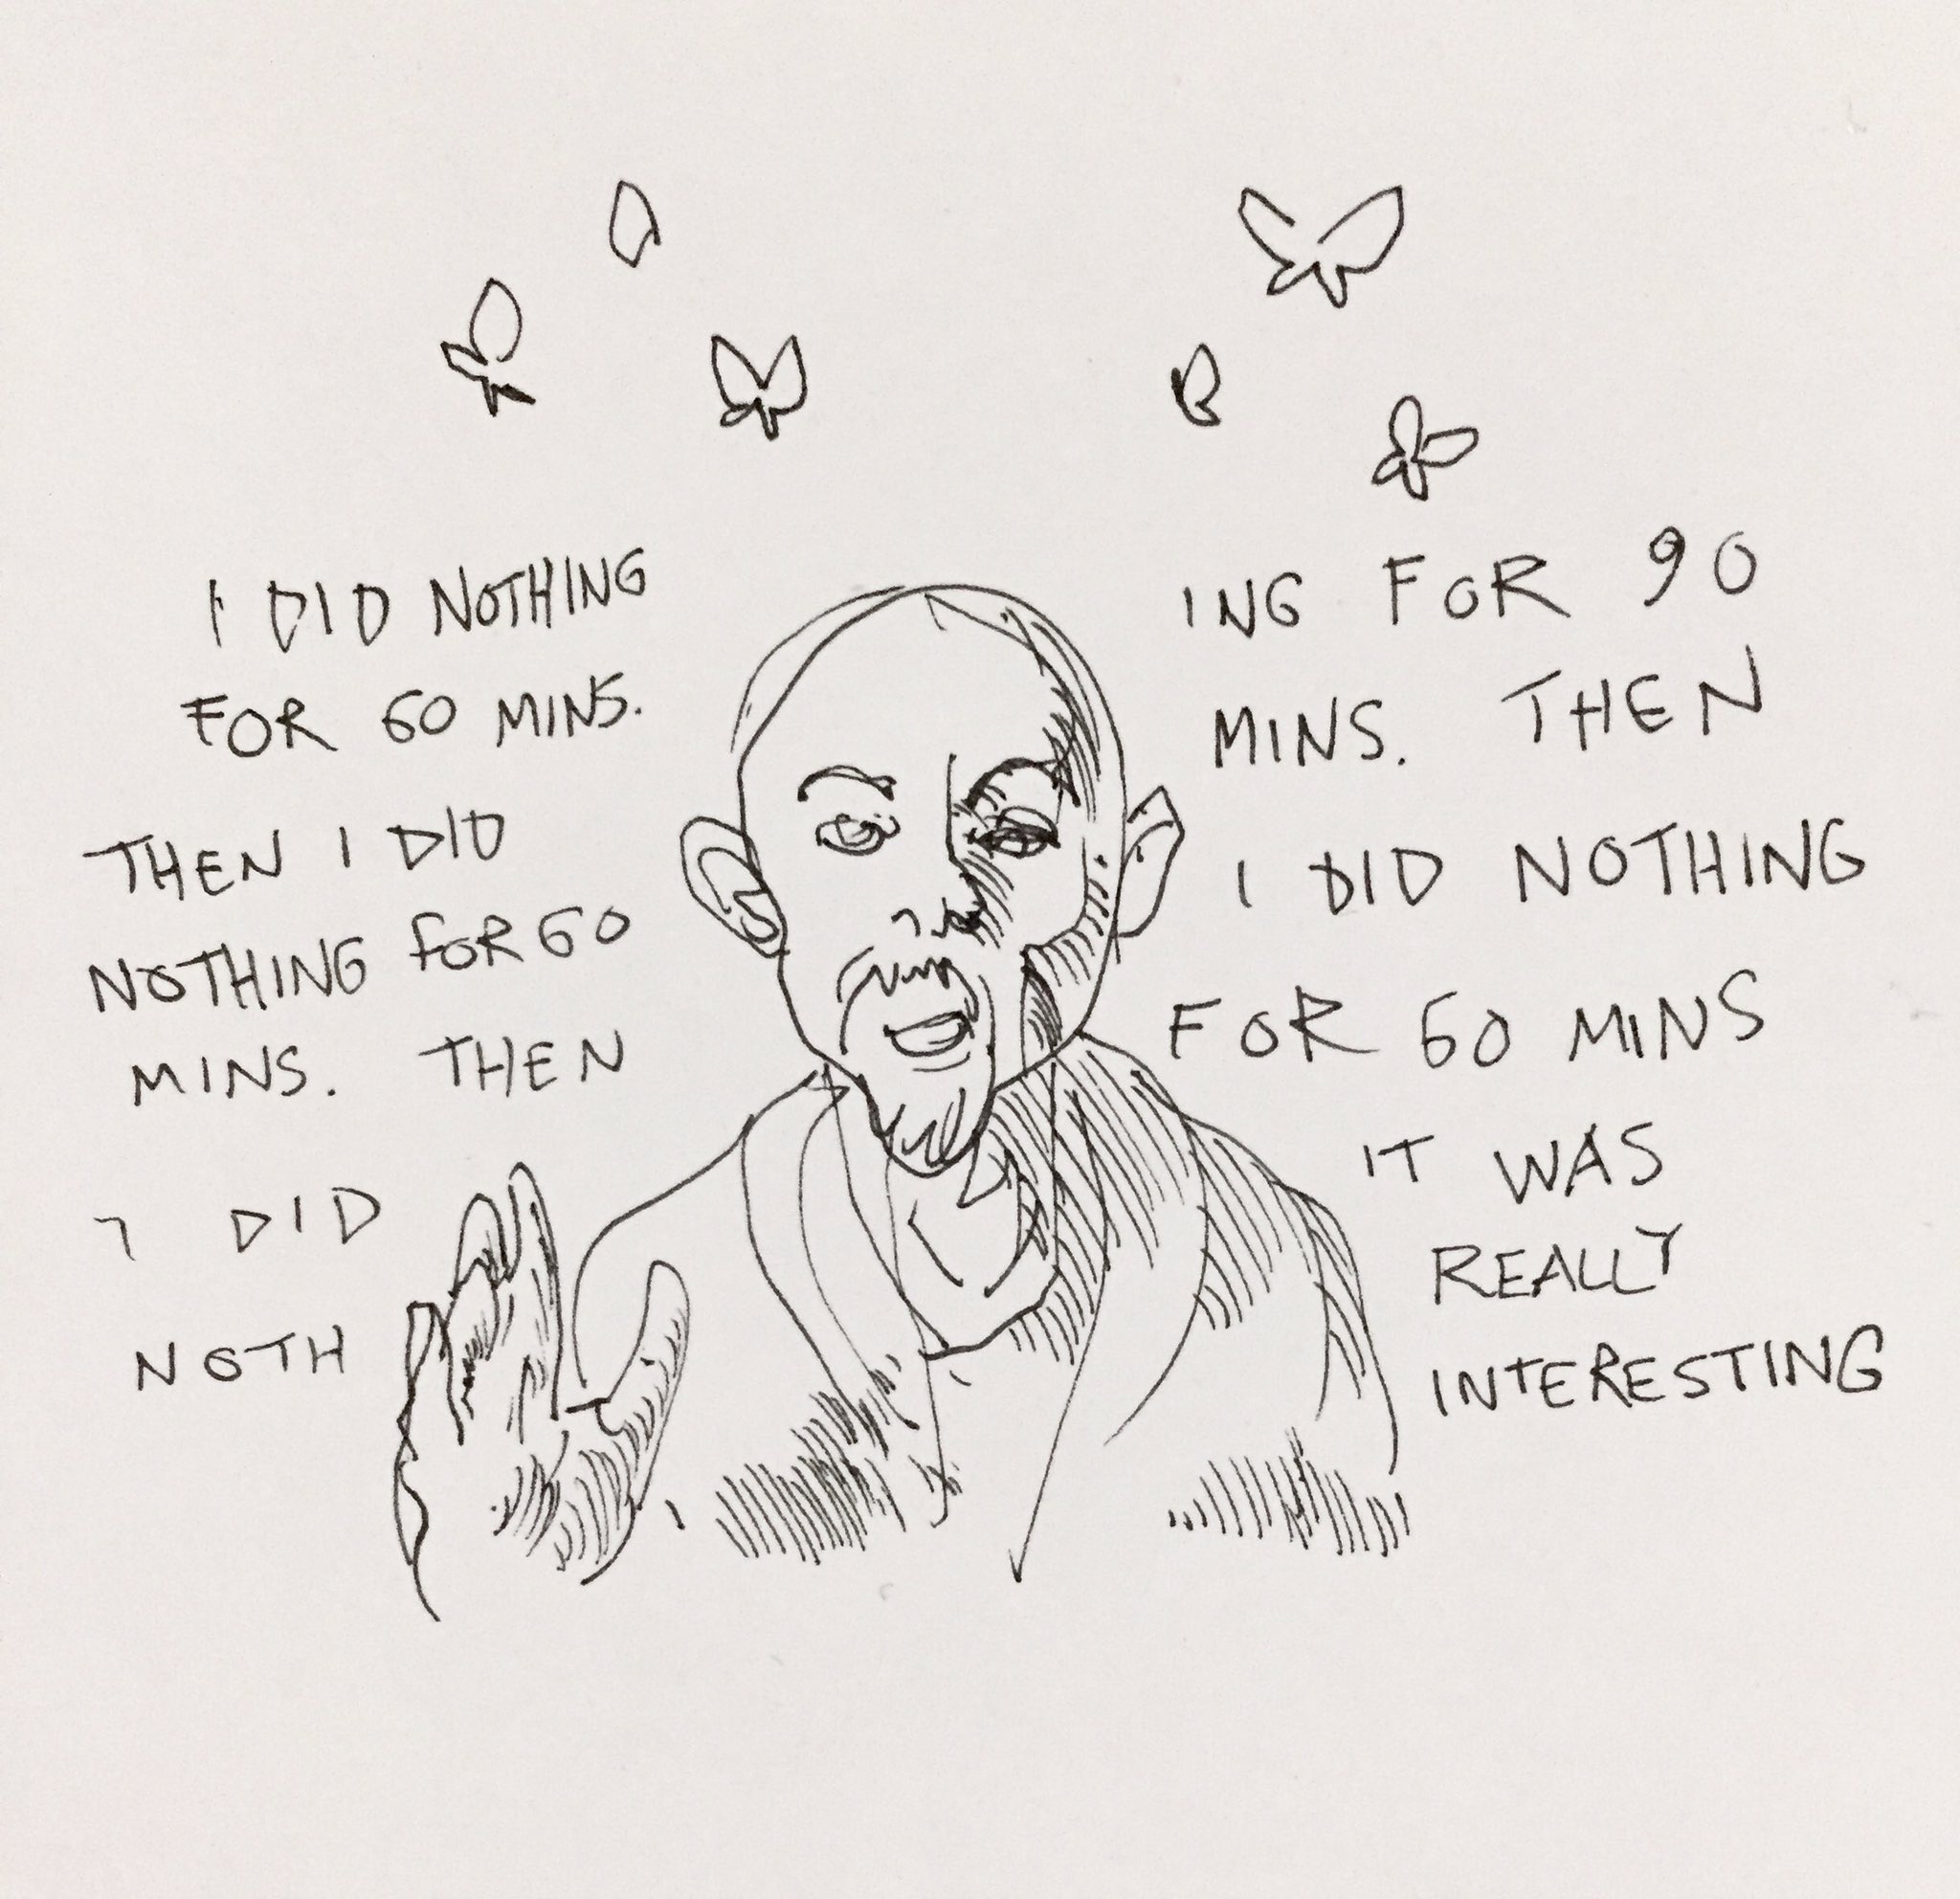 I DID NOTHING
FOR 60 MINS.
THEN I DID
NOTHING FOR 60
MINS. THEN
I DID
NOTH
ING FOR 90
MINS. THEN
I DID NOTHING
FOR 60 MINS
IT WAS
REALLY
INTERESTING